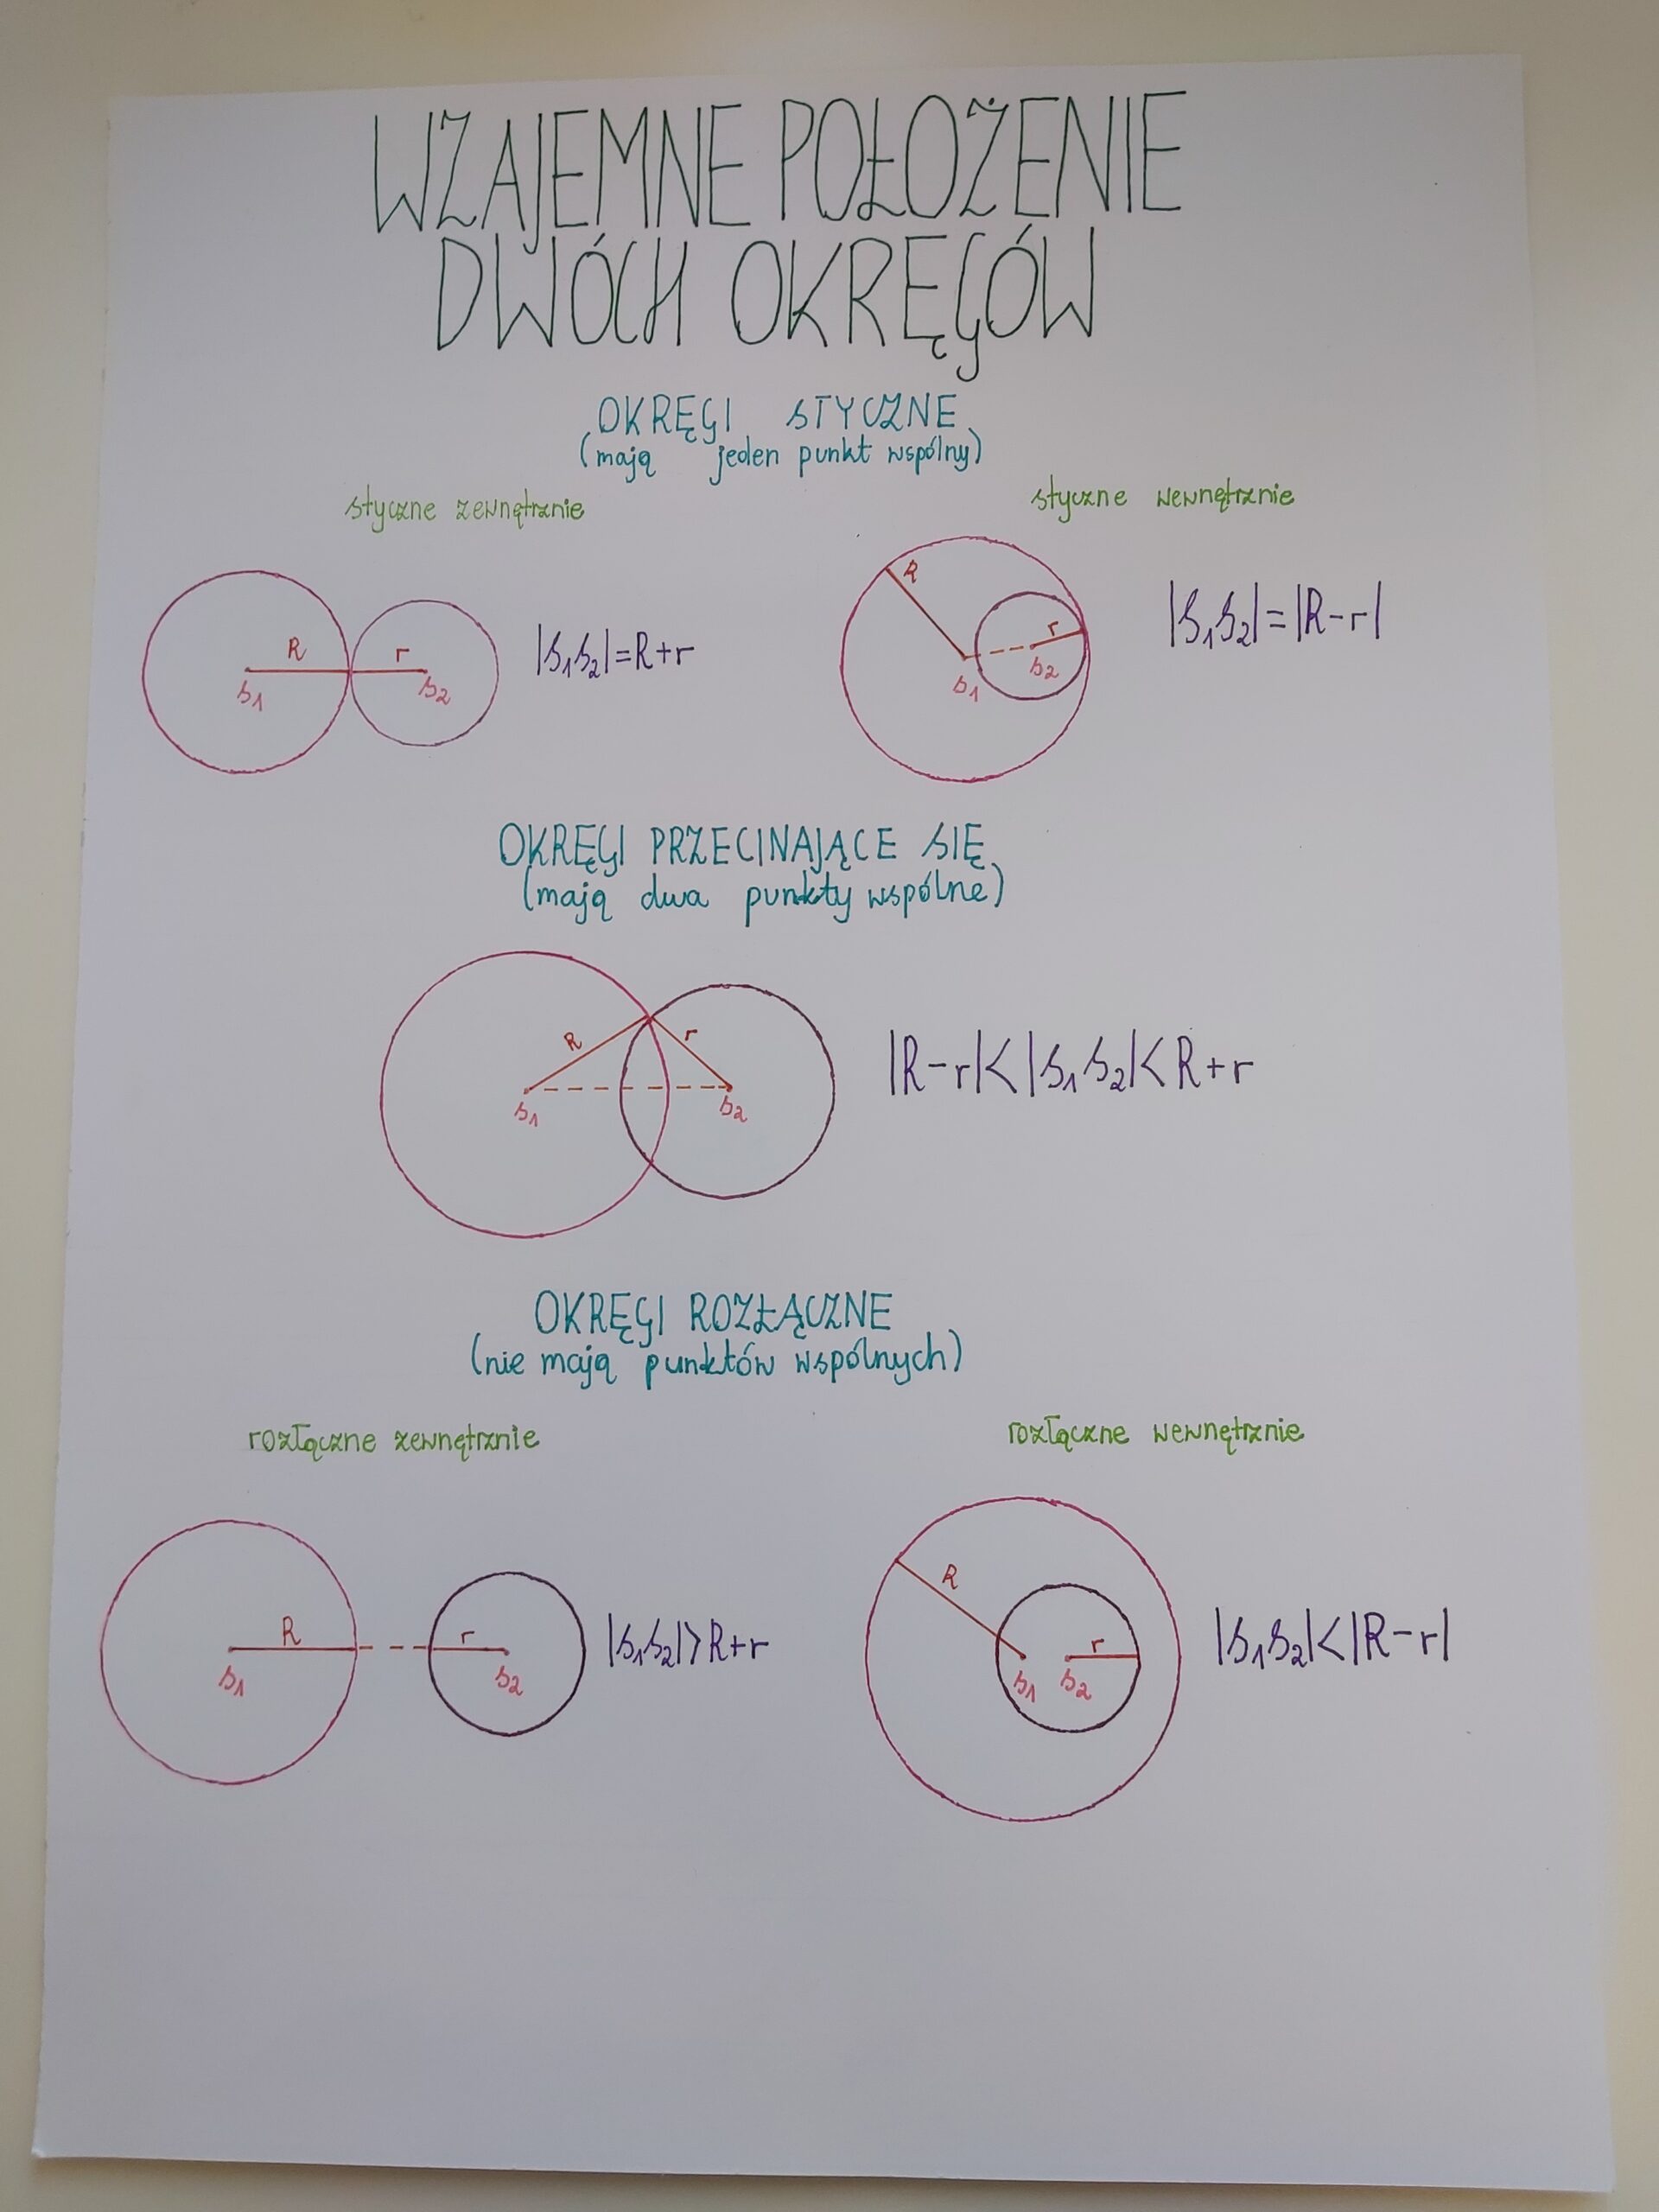 WZAJEMNE POŁOŻENIE
DWÓCH OKRĘGÓW
OKRĘGI STYCZNE
(mają jeden punkt wspólny)
styczne zewnętrznie
styczne wewnętrznie
R r
S₁ S₂
|S₁S₂|=R+r
R
r
S₁ S₂
|S₁S₂|=|R-r|
OKRĘGI PRZECINAJĄCE SIĘ
(mają dwa punkty wspólne)
R r
S₁ S₂
|R-r|<|S₁S₂|<R+r
OKRĘGI ROZŁĄCZNE
(nie mają punktów wspólnych)
rozłączne zewnętrznie
rozłączne wewnętrznie
R r
S₁ S₂
|S₁S₂|>R+r
R
r
S₁ S₂
|S₁S₂|<|R-r|